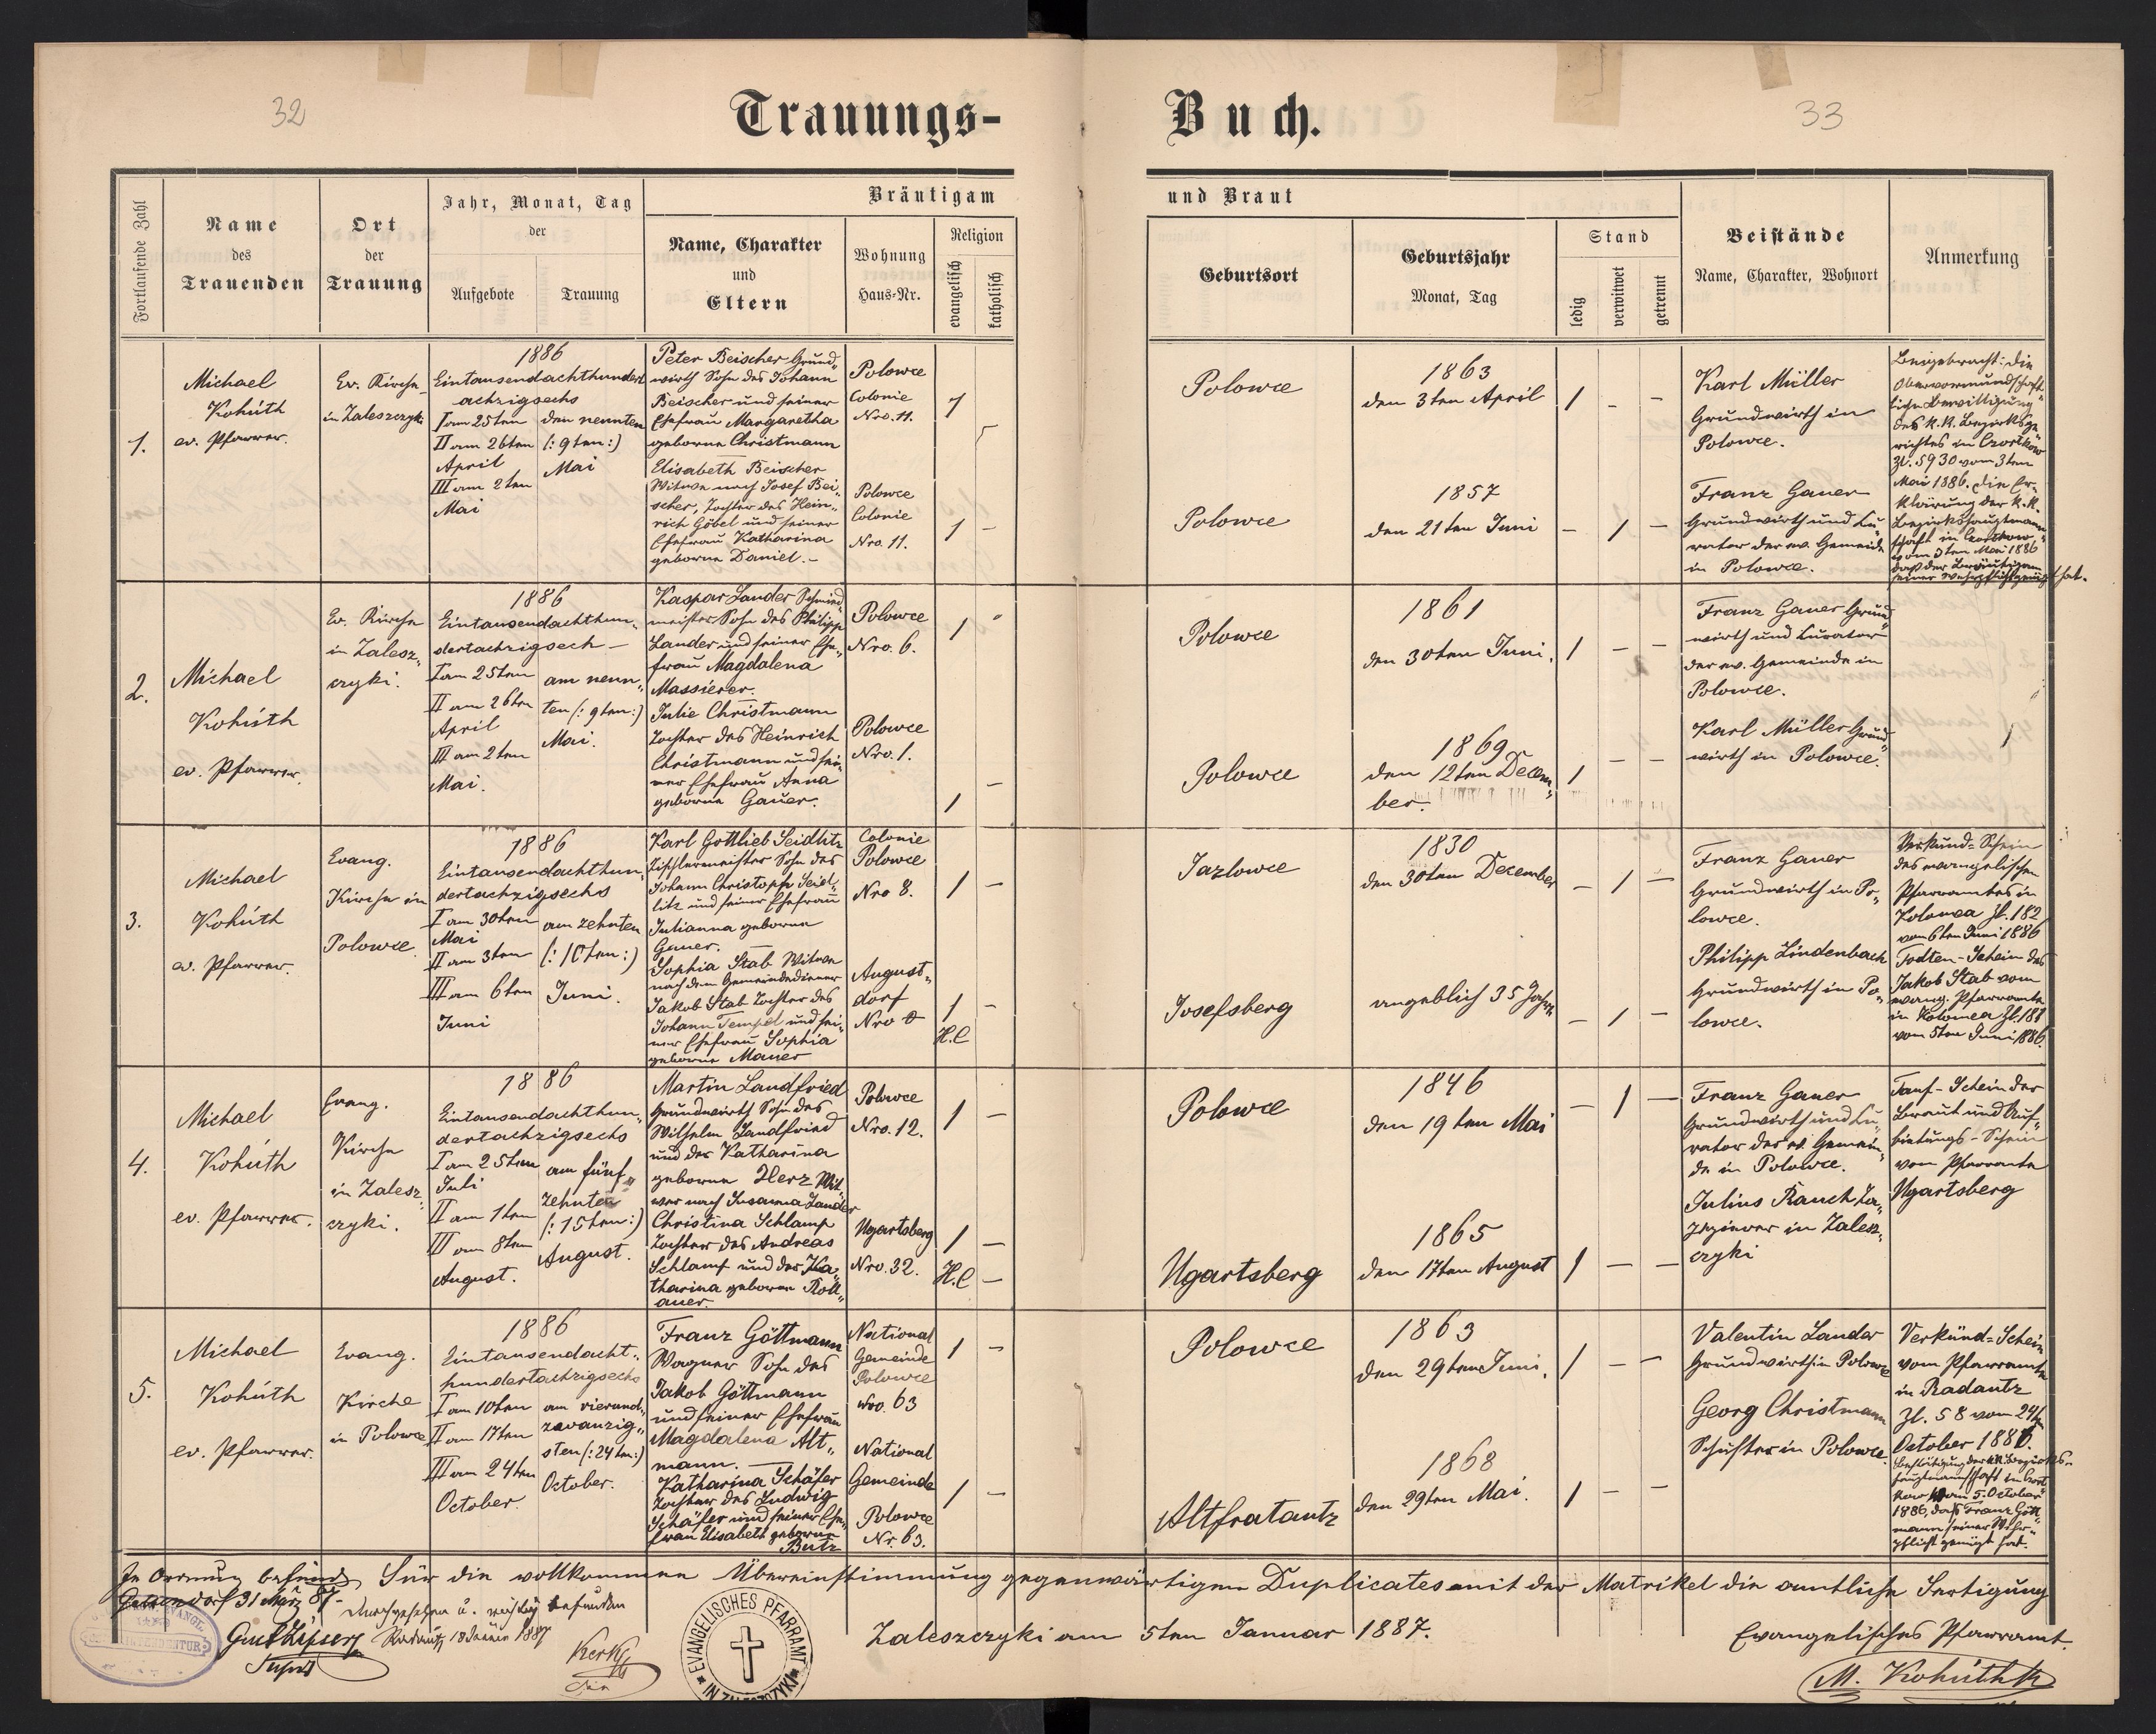 32
33
Trauungs-
Buch.
Fortlaufende Zahl
Name
des
Trauenden
Ort
der
Trauung
Jahr, Monat, Tag
der
Aufgebote
Trauung
Bräutigam
Name, Charakter
und
Eltern
Wohnung
Haus-Nr.
Religion
evangelisch
katholisch
und Braut
Geburtsort
Geburtsjahr
Monat, Tag
Stand
ledig
verwitwet
getrennt
Beistände
Name, Charakter, Wohnort
Anmerkung
1.
Michael
Kohúth
ev. Pfarrer.
Ev. Kirche
in Zaleszczyki
1886
Eintausendachthundert
achzigsechs
I am 25ten
II am 26ten
April
III am 2ten
Mai
den neunten
(: 9ten :)
Mai
Peter Beischer Grund„
wirth Sohn des Johann
Beischer und seiner
Ehefrau Margaretha
geborne Christmann
Polowce
Colonie
Nro. 11.
1
Elisabeth Beischer
Witwe nach Josef Bei„
scher, Tochter des Hein„
rich Göbel und seiner
Ehefrau Katharina
geborne Daniel. –
Polowce
Colonie
Nro. 11.
1 –
Polowce
1863
den 3ten April
1 – –
Polowce
1857
den 21ten Juni
– 1 –
Karl Müller
Grundwirth in
Polowce.
Franz Gauer
Grundwirth und Cu„
rator der ev. Gemeinde
in Polowce.
Beigebracht: die
Obervormundschaft„
liche Bewilligung
des K.K. Bezirksge„
richtes in Czortków
Zl. 5930 vom 3ten
Mai 1886. die Er„
klärung der K.K.
Bezirkshauptmann„
schaft in Czortkow
vom 3ten Mai 1886
daß der Bräutigam
seiner Wehrpflicht genügt hat.
2.
Michael
Kohúth
ev. Pfarrer.
Ev. Kirche
in Zalesz„
czyki.
1886
Eintausendachthun„
dertachzigsech –
I am 25ten
II am 26ten
April
III am 2ten
Mai.
am neun„
ten (: 9ten :)
Mai.
Kaspar Lander Schmied„
meister Sohn des Philipp
Lander und seiner Ehe„
frau Magdalena
Massierer.
Polowce
Nro. 6.
1
Julie Christmann
Tochter des Heinrich
Christmann und sei„
ner Ehefrau Anna
geborne Gauer.
Polowce
Nro. 1.
1 –
Polowce
1861
den 30ten Juni.
1 – –
Polowce
1869
den 12ten Decem„
ber.
1 – –
Franz Gauer Grund„
wirth und Curator
der ev. Gemeinde in
Polowce.
Karl Müller Grund„
wirth in Polowce.
3.
Michael
Kohúth
ev. Pfarrer.
Evang.
Kirche in
Polowce
1886
Eintausendachthun„
dertachzigsechs
I am 30ten
Mai
II am 3ten
III am 6ten
Juni
am zehnten
(: 10ten :)
Juni.
Karl Gottlieb Seidlitz
Tischlermeister Sohn des
Johann Christoph Seid„
litz und seiner Ehefrau
Julianna geborne
Gauer.
Colonie
Polowce
Nro 8.
1 –
Sophia Stab Witwe
nach dem Gemeindediener
Jakob Stab Tochter des
Johann Tempel und sei„
ner Ehefrau Sophia
geborne Mauer
August„
dorf
Nro
1 –
H.C
Jazlowce
1830
den 30ten December
– 1 –
Josefsberg
angeblich 35 Jahre
– 1 –
Franz Gauer
Grundwirth in Po„
lowce.
Philipp Lindenbach
Grundwirth in Po„
lowce.
Verkünd-Schein
des evangelischen
Pfarramtes in
Kolomea Zl. 182
vom 6ten Juni 1886
Todten-Schein des
Jakob Stab vom
evang. Pfarramte
in Kolomea Zl. 181
vom 5ten Juni 1886.
4.
Michael
Kohúth
ev. Pfarrer.
Evang.
Kirche
in Zalesz„
czyki.
1886
Eintausendachthun„
dertachzigsechs
I am 25ten
Juli
II am 1ten
III am 8ten
August.
am fünf„
zehnten
(: 15ten :)
August.
Martin Landfried
Grundwirth Sohn des
Wilhelm Landfried
und der Katharina
geborne Herz Wit„
wer nach Susanna Lander
Polowce
Nro. 12.
1 –
Christina Schlamp
Tochter des Andreas
Schlamp und der Ka„
tharina geborene Roll„
auer.
Ugartsberg
Nro. 32.
1 –
H.C –
Polowce
1846
den 19ten Mai
– 1 –
Ugartsberg
1865
den 17ten August
1 – –
Franz Gauer
Grundwirth und Cu„
rator der ev. Gemein„
de in Polowce.
Julius Rauch
in Zalesz„
czyki
Tauf-Schein der
Braut und Auf„
bietungs-Schein
vom Pfarramte
Ugartsberg
5.
Michael
Kohúth
ev. Pfarrer.
Evang.
Kirche
in Polowce
1886
Eintausendacht„
hundertachzigsechs
I am 10ten
II am 17ten
III am 24ten
October.
am vierund„
zwanzig„
sten (: 24ten :)
October.
Franz Göttmann
Wagner Sohn des
Jakob Göttmann
und seiner Ehefrau
Magdalena Alt„
mann. –
National
Gemeinde
Polowce
Nro. 63
1 –
Katharina Schäfer
Tochter des Ludwig
Schäfer und seiner Ehe„
frau Elisabeth geborne
Butz
National
Gemeinde
Polowce
Nr. 63.
1 –
Polowce
1863
den 29ten Juni.
1 – –
Altfratautz
1868
den 29ten Mai.
1 – –
Valentin Lander
Grundwirth in Polowce
Georg Christmann
Schuster in Polowce.
Verkünd-Schein
vom Pfarramte
in Radautz
Zl. 58 vom 24ten
October 1886.
Bestätigung der KK. Bezirks„
hauptmannschaft in Czort„
kow vom 5. October
1886, daß Franz Gött„
mann seiner Wehr„
pflicht genügt hat.
In Ordnung befunden
31 März 87.
Durchgesehen u. richtig befunden
Radautz, 18 Jänner 1887
Für die vollkommene Übereinstimmung gegenwärtigen Duplicates mit der Matrikel die amtliche Fertigung
Zaleszczyki am 5ten Januar 1887.
Evangelisches Pfarramt.
M. Kohúth
EVANGELISCHES PFARRAMT